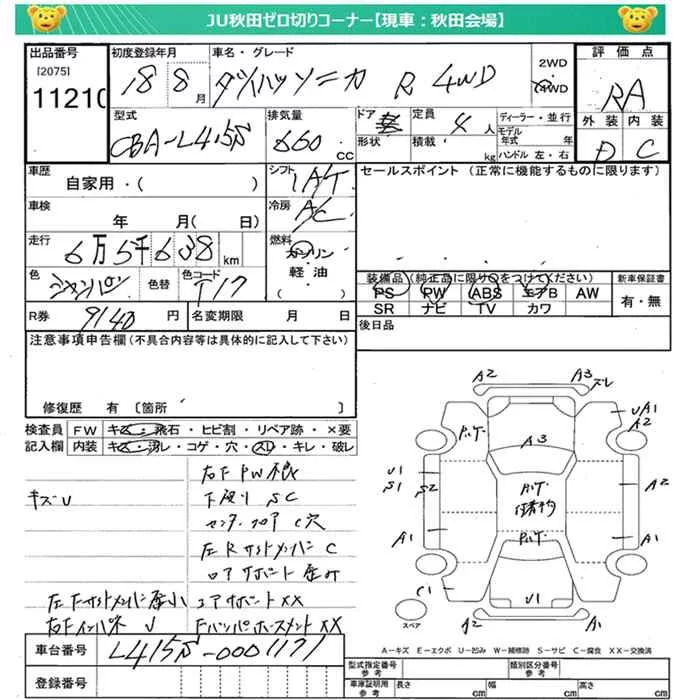 JU秋田ゼロ切りコーナー【現車：秋田会場】
出品番号
[2075]
11210
初度登録年月
18 8 月
車名・グレード
ダイハツソニカ R 4WD
2WD
4WD
評価点
RA
外装 内装
D C
型式
CBA-L415S
排気量
660 CC
ドア
形状
定員
4 人
積載
kg
ディーラー・並行
モデル年式 年
ハンドル 左・右
車歴
自家用・( )
シフト
IA/T
セールスポイント (正常に機能するものに限ります)
車検
年 月( 日)
冷房
A/C
走行
6万5千638 km
燃料
ガソリン
軽油
( )
色
シャンパン
色替
色コード
T17
装備品 (純正品に限り○をつけてください)
PS PW ABS エアB AW
SR ナビ TV カワ
新車保証書
有・無
R券
9140 円
名変期限 月 日
後日品
注意事項申告欄(不具合内容等は具体的に記入して下さい)
修復歴 有 〔箇所 〕
検査員
記入欄
FW キズ・飛石・ヒビ割・リペア跡・×要
内装 キズ・汚レ・コゲ・穴・スレ・キレ・破レ
キズU
右F PW不良
下廻り SC
センターフロア C穴
左Rサイドメンバー C
ロアサポート 歪ミ
左Fサイドメンバー歪小
コアサポート XX
右Fインパネ U
Fバンパーホースメント XX
A2 A3 ズレ
UA1
A2
A3
U1
S1 S2
A2
A1 A1
C1
U1
A2 A1
スペア
A－キズ E－エクボ U－凹み W－補修跡 S－サビ C－腐食 XX－交換済
車台番号
L415S-0001171
登録番号
型式指定番号
参考
類別区分番号
参考
車庫証明用
参考
長さ cm
幅 cm
高さ cm